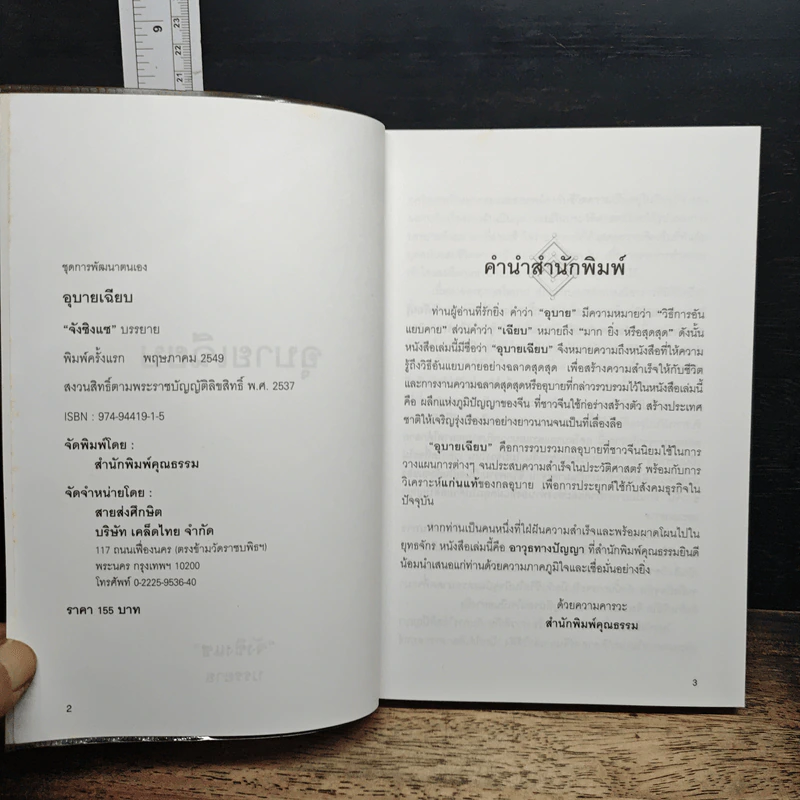 9
23
22
21
ชุดการพัฒนาตนเอง
อุบายเฉียบ
“จังซิงแซ” บรรยาย
พิมพ์ครั้งแรก พฤษภาคม 2549
สงวนสิทธิ์ตามพระราชบัญญัติลิขสิทธิ์ พ.ศ. 2537
ISBN : 974-94419-1-5
จัดพิมพ์โดย :
สำนักพิมพ์คุณธรรม
จัดจำหน่ายโดย :
สายส่งศึกษิต
บริษัท เคล็ดไทย จำกัด
117 ถนนเฟื่องนคร (ตรงข้ามวัดราชบพิธฯ)
พระนคร กรุงเทพฯ 10200
โทรศัพท์ 0-2225-9536-40
ราคา 155 บาท
2
คำนำสำนักพิมพ์
ท่านผู้อ่านที่รักยิ่ง คำว่า “อุบาย” มีความหมายว่า “วิธีการอัน
แยบคาย” ส่วนคำว่า “เฉียบ” หมายถึง “มาก ยิ่ง หรือสุดสุด” ดังนั้น
หนังสือเล่มนี้มีชื่อว่า “อุบายเฉียบ” จึงหมายความถึงหนังสือที่ให้ความ
รู้ถึงวิธีอันแยบคายอย่างฉลาดสุดสุด เพื่อสร้างความสำเร็จให้กับชีวิต
และการงานความฉลาดสุดสุดหรืออุบายที่กล่าวรวบรวมไว้ในหนังสือเล่มนี้
คือ ผลึกแห่งภูมิปัญญาของจีน ที่ชาวจีนใช้ก่อร่างสร้างตัว สร้างประเทศ
ชาติให้เจริญรุ่งเรืองมาอย่างยาวนานจนเป็นที่เลื่องลือ
“อุบายเฉียบ” คือการรวบรวมกลอุบายที่ชาวจีนนิยมใช้ในการ
วางแผนการต่างๆ จนประสบความสำเร็จในประวัติศาสตร์ พร้อมกับการ
วิเคราะห์แก่นแท้ของกลอุบาย เพื่อการประยุกต์ใช้กับสังคมธุรกิจใน
ปัจจุบัน
หากท่านเป็นคนหนึ่งที่ใฝ่ฝันความสำเร็จและพร้อมผาดโผนไปใน
ยุทธจักร หนังสือเล่มนี้คือ อาวุธทางปัญญา ที่สำนักพิมพ์คุณธรรมยินดี
น้อมนำเสนอแก่ท่านด้วยความภาคภูมิใจและเชื่อมั่นอย่างยิ่ง
ด้วยความคารวะ
สำนักพิมพ์คุณธรรม
3